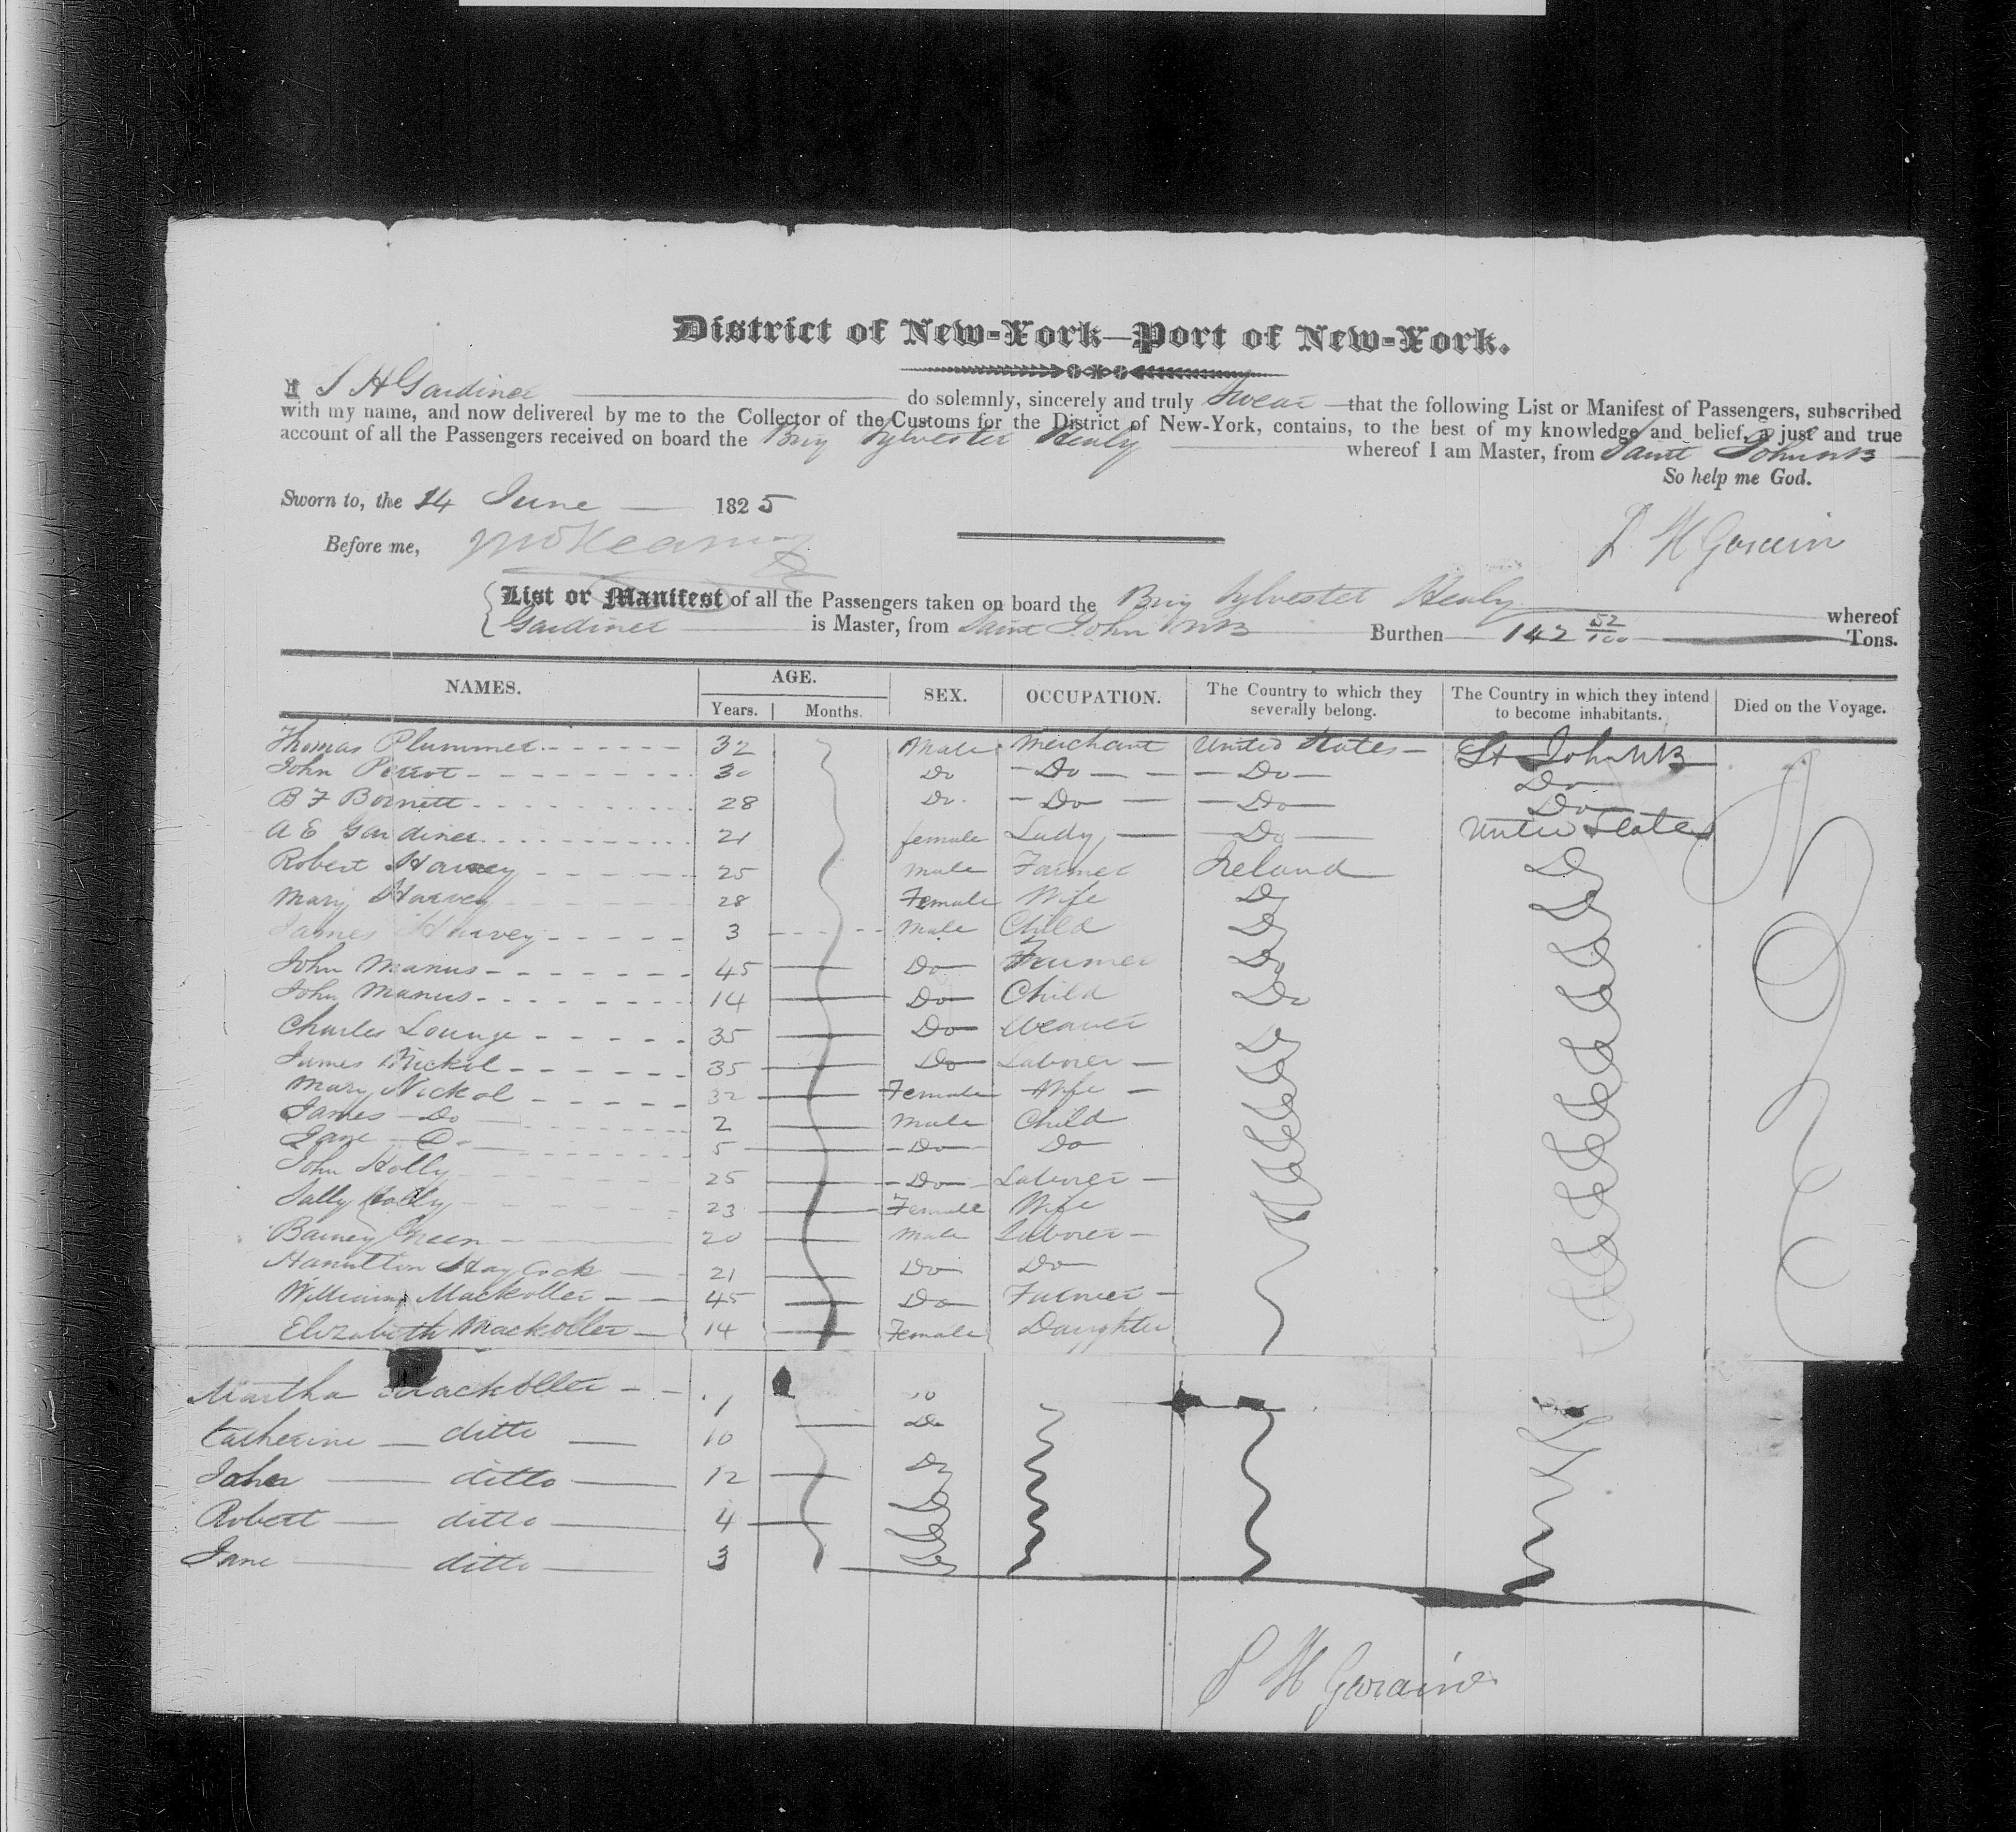 District of New-York—Port of New-York.
I S H Gardiner do solemnly, sincerely and truly Swear that the following List or Manifest of Passengers, subscribed
with my name, and now delivered by me to the Collector of the Customs for the District of New-York, contains, to the best of my knowledge and belief, a just and true
account of all the Passengers received on board the Brig Sylvester Healy whereof I am Master, from Saint John NB
So help me God.
Sworn to, the 14 June 1825
Before me,
S H Gardiner
List or Manifest of all the Passengers taken on board the Brig Sylvester Healy whereof
Gardiner is Master, from Saint John NB Burthen 142 52/100 Tons.
NAMES. AGE. Years. Months. SEX. OCCUPATION. The Country to which they severally belong. The Country in which they intend to become inhabitants. Died on the Voyage.
Thomas Plummer 32 Male Merchant United States St John NB
John Perrot 30 Do Do Do Do
B F Bornett 28 Do Do Do Do
A E Gardiner 21 female Lady Do United States
Robert Harvey 25 male Farmer Ireland Do
Mary Harvey 28 Female Wife Do Do
James Harvey 3 Male Child Do
John Manus 45 Do Farmer Do
John Manus 14 Do Child Do
Charles Lounge 35 Do Weaver Do
James Nickol 35 Do Laborer
Mary Nickol 32 Female Wife
James Do 2 Male Child
Jane Do 5 Do Do
John Holly 25 Do Laborer
Sally Holly 23 Female Wife
Barney Green 20 Male Laborer
Hamilton Haycock 21 Do Do
William Mackoller 45 Do Farmer
Elizabeth Mackoller 14 Female Daughter
Martha Mackoller
Catherine ditto 10 Do
John ditto 12 Do
Robert ditto 4 Do
Jane ditto 3 Do
S H Gardiner